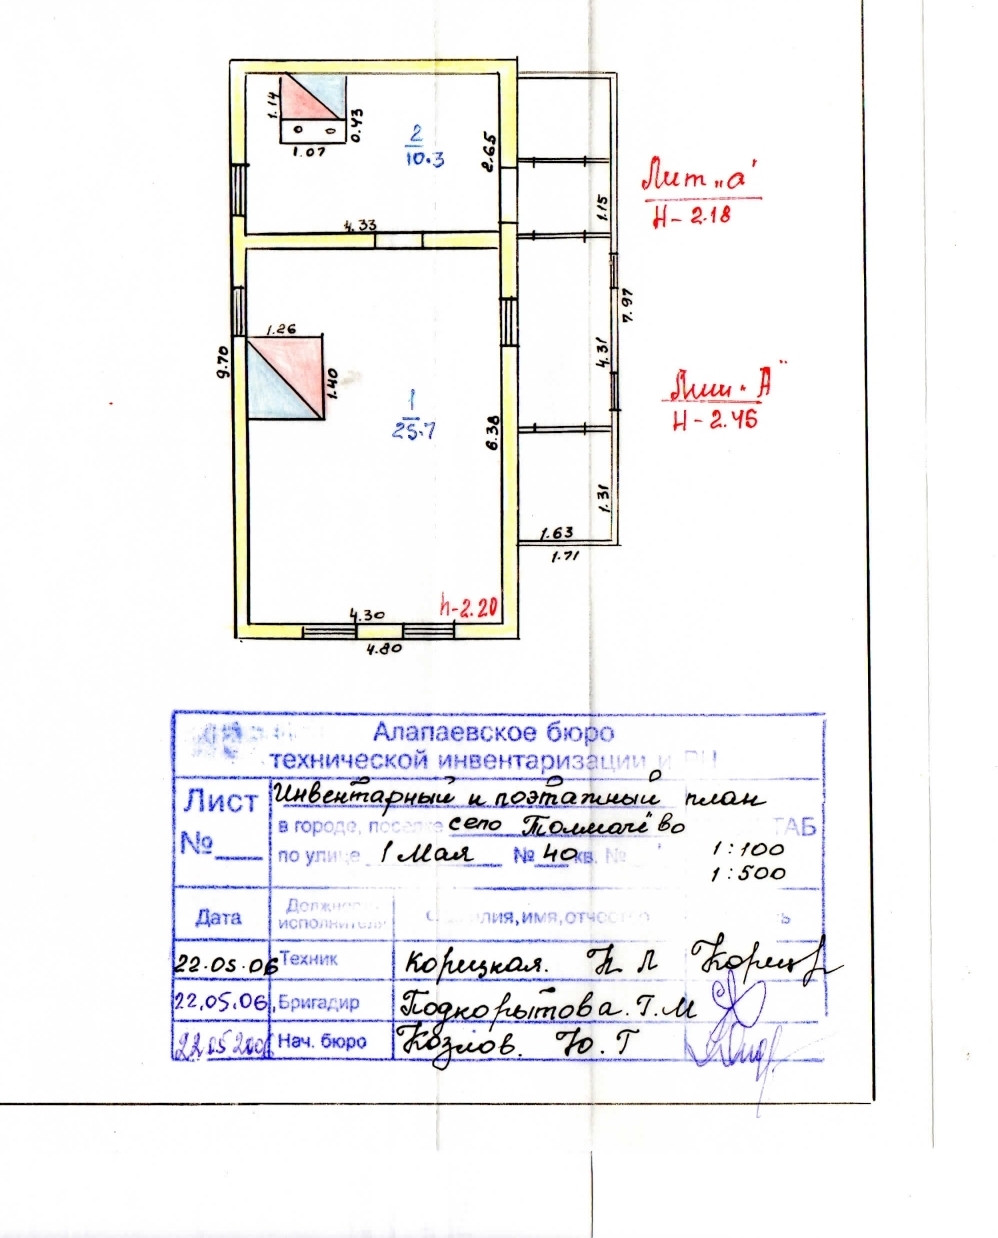 1.14
0.43
1.07
2
10.3
2.65
4.33
1.15
Лит „а"
H-2.18
1.26
1.40
9.70
1
25.7
6.38
4.31
7.97
Лит. А"
H-2.46
1.31
1.63
1.71
4.30
h-2.20
4.80
Алапаевское бюро
технической инвентаризации и
Лист
№
Инвентарный и поэтажный план
в городе, поселке село Толмачёво
по улице 1 Мая № 40 кв. №
1:100
1:500
Дата
Должность исполнителя
имя, отчество
22.05.06 Техник Корецкая. Н Л
22.05.06. Бригадир Подкорытова. Г. М
22.05.2006 Нач. бюро Козлов. Ю. Г